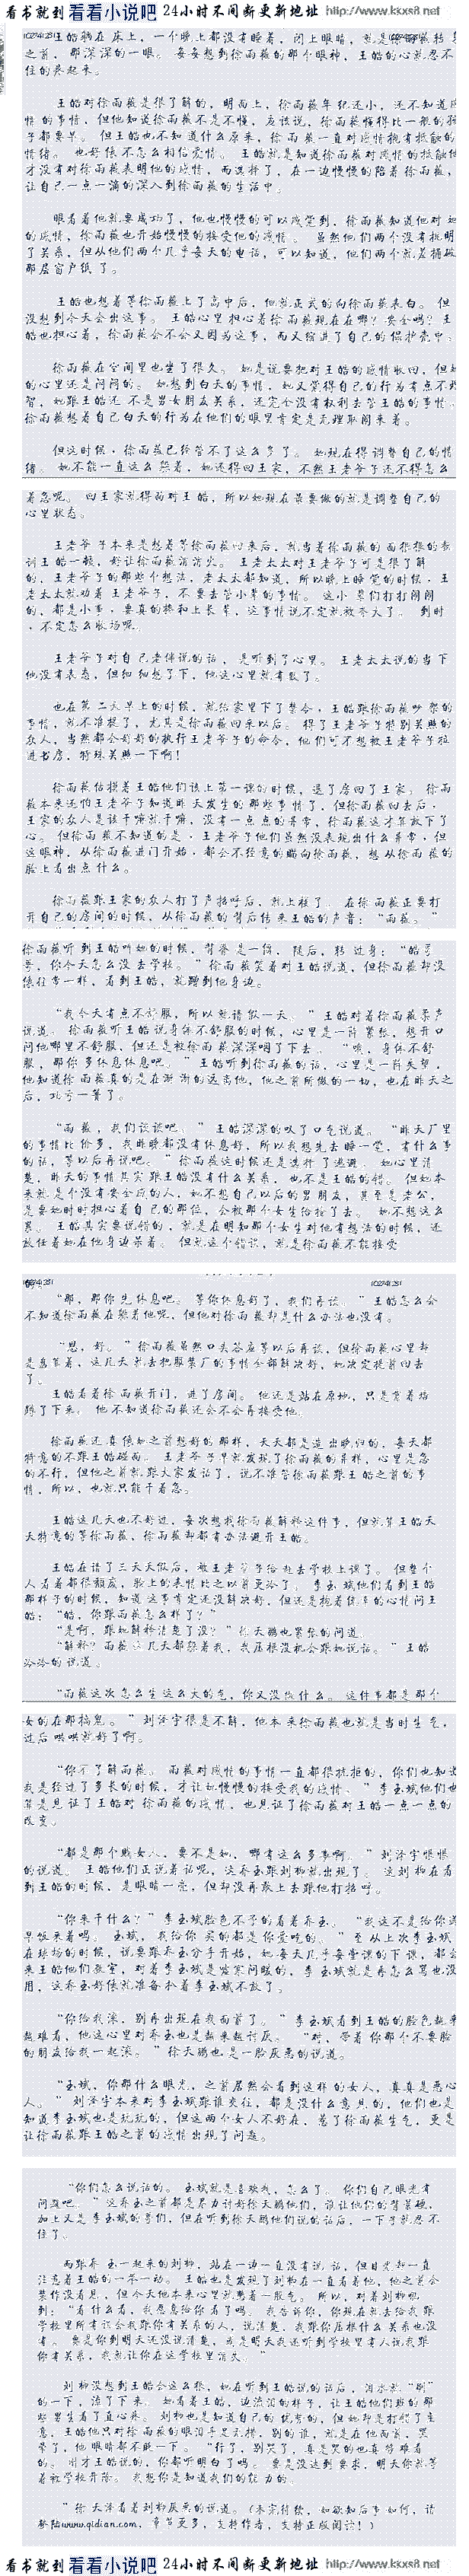 看书就到 看看小说吧 24小时不间断更新地址 http://www.kxs8.net
王皓躺在床上，一个晚上都没有睡着，闭上眼睛，就是徐雨薇转身
之前，那深深的一眼。每每想到徐雨薇的那个眼神，王皓的心就忍不
住的疼起来。
王皓对徐雨薇是很了解的，明面上，徐雨薇年纪还小，还不知道感
情的事情，但他知道徐雨薇不是不懂，应该说，徐雨薇懂得比一般的孩
子都要早。但王皓也不知道什么原来，徐雨薇一直对感情抱有抵触的
情绪。也好像不怎么相信爱情。王皓就是知道徐雨薇对感情的抵触他
才没有对徐雨薇表明他的感情，而选择了，在一边慢慢的陪着徐雨薇，
让自己一点一滴的深入到徐雨薇的生活中。
眼看着他就要成功了，他也慢慢的可以感觉到，徐雨薇知道他对她
的感情，徐雨薇也开始慢慢的接受他的感情。虽然他们两个没有挑明
了关系，但从他们两个几乎每天的电话，可以知道，他们两个就差捅破
那层窗户纸了。
王皓也想着等徐雨薇上了高中后，他就正式的向徐雨薇表白。但
没想到今天会出这事。王皓心里担心着徐雨薇现在在哪？安全吗？王
皓也担心着，徐雨薇会不会又因为这事，而又缩进了自己的保护壳中。
徐雨薇在空间里也坐了很久。她是说要把对王皓的感情收回，但她
的心里还是闷闷的。她想到白天的事情，她又觉得自己的行为有点不理
智，她跟王皓还不是男女朋友关系，还完全没有权利去管王皓的事情。
徐雨薇想着自己白天的行为在他们的眼里肯定是无理取闹来着。
但这时候，徐雨薇已经管不了这么多了。她现在得调整自己的情
绪。她不能一直这么躲着，她还得回王家，不然王老爷子还不得怎么
着急呢。回王家就得面对王皓，所以她现在最要做的就是调整自己的
心里状态。
王老爷子本来是想着等徐雨薇回来后，就当着徐雨薇的面狠狠的教
训王皓一顿，好让徐雨薇消消火。王老太太对王老爷子可是很了解
的，王老爷子的那些个想法，老太太都知道，所以晚上睡觉的时候，王
老太太就劝着王老爷子，不要去管小辈的事情。这小辈们打打闹闹
的，都是小事，要真的掺和上长辈，这事情说不定就被夸大了。到时
，不定怎么收场呢。
王老爷子对自己老伴说的话，是听到了心里。王老太太说的当下
他没有表态，但细细想了下，他这心里就有数了。
也在第二天早上的时候，就给家里下了禁令，王皓跟徐雨薇吵架的
事情，就不准提了，尤其是徐雨薇回来以后。得了王老爷子特别关照的
众人，当然都会好好的执行王老爷子的命令，他们可不想被王老爷子拉
进书房，特殊关照一下啊！
徐雨薇估摸着王皓他们该上第一课的时候，退了房回了王家。徐雨
薇本来还怕王老爷子知道昨天发生的那些事情了，但徐雨薇回去后，
王家的众人是该干嘛就干嘛，没有一点点的异常，徐雨薇这才算放下了
心。但徐雨薇不知道的是，王老爷子他们虽然没表现出什么异常，但
这眼神，从徐雨薇进门开始，都会不经意的瞄向徐雨薇，想从徐雨薇的
脸上看出点什么。
徐雨薇跟王家的众人打了声招呼后，就上楼了。在徐雨薇正要打
开自己的房间的时候，从徐雨薇的背后传来王皓的声音：“雨薇。”
徐雨薇听到王皓叫她的时候，背脊是一僵，随后，转过身：“皓哥
哥，你今天怎么没去学校。”徐雨薇笑着对王皓说道，但徐雨薇却没
像往常一样，看到王皓，就蹭到他身边。
“我今天有点不舒服，所以就请假一天。”王皓对着徐雨薇柔声
说道。徐雨薇听王皓说身体不舒服的时候，心里是一阵紧张，想开口
问他哪里不舒服，但还是被徐雨薇深深咽了下去。“噢，身体不舒
服，那你多休息休息吧。”王皓听到徐雨薇的话，心里是一阵失望，
他知道徐雨薇真的是在渐渐的远离他，他之前所做的一切，也在昨天之
后，功亏一篑了。
“雨薇，我们谈谈吧。”王皓深深的叹了口气说道。“昨天厂里
的事情比价多，我昨晚都没有休息好，所以我想先去睡一觉，有什么事
的话，等以后再说吧。”徐雨薇这时候还是选择了逃避。她心里清
楚，昨天的事情其实跟王皓没有什么关系，也不是王皓的错。但她本
来就是个没有安全感的人，她不想自己以后的男朋友，甚至是老公，
是要她时时担心着自己的那位，会被那个女生给抢了去。她不想这么
累。王皓其实要说错的，就是在明知那个女生对他有想法的时候，还
放任着她在他身边呆着。但就这个错误，就是徐雨薇不能接受
“那，那你先休息吧。等你休息好了，我们再谈。”王皓怎么会
不知道徐雨薇在躲着他呢，但他对徐雨薇却是什么办法也没有。
“恩，好。”徐雨薇虽然口头答应等以后再谈，但徐雨薇心里却
是盘算着，这几天就去把服装厂的事情全部解决好，她决定提前回去
了。
王皓看着徐雨薇开门，进了房间。他还是站在原地，只是背着墙
蹲了下来。他不知道徐雨薇还会不会再接受他。
徐雨薇还真像如之前想好的那样，天天都是早出晚归的，每天都
特意的不跟王皓碰面。王老爷子早就发现了徐雨薇的异样，心里是急
的不行，但他之前就跟大家发话了，说不准管徐雨薇跟王皓之前的事
情，所以，也就只能干着急。
王皓这几天也不好过，每次想找徐雨薇解释这件事，但就算王皓天
天特意的等徐雨薇，徐雨薇却都有办法避开王皓。
王皓在请了三天天假后，被王老爷子给赶去学校上课了。但整个
人看着都很颓废，脸上的表情比之以前更冷了。李玉斌他们看到王皓
那样子的时候，知道这事肯定还没解决好，但还是抱着侥幸的心情问王
皓：“皓，你跟雨薇怎么样了？”
“是啊，跟她解释清楚了没？”徐天鹏也紧张的问道。
“解释？雨薇这几天都躲着我，我压根没机会跟她说话。”王皓
冷冷的说道。
“雨薇这次怎么生这么大的气，你又没做什么。这件事都是那个
女的在那搞鬼。”刘泽宇很是不解，他本来徐雨薇也就是当时生气，
过后哄哄就好了啊。
“你不了解雨薇。雨薇对感情的事情一直都很抗拒的，你们也知道
我是经过了多长的时候，才让她慢慢的接受我的感情。”李玉斌他们也
算是见证了王皓对徐雨薇的感情，也见证了徐雨薇对王皓一点一点的
改变。
“都是那个贱女人，要不是她，哪有这么多事啊。”刘泽宇恨恨
的说道。王皓他们正说着话呢，这乔玉跟刘柳就出现了。这刘柳在看
到王皓的时候，是眼睛一亮，但却没再敢上去跟他打招呼。
“你来干什么？”李玉斌脸色不予的看着乔玉。“我这不是给你送
早饭来着吗。玉斌，我给你买的都是你爱吃的。”至从上次李玉斌
在球场的时候，说要跟乔玉分手开始，她每天几乎每堂课的下课，都会
来王皓他们教室，对着李玉斌是嘘寒问暖的，李玉斌就是再怎么骂也没
用，这乔玉好像就准备扒着李玉斌不放了。
“你给我滚，别再出现在我面前了。”李玉斌看到王皓的脸色越来
越难看，他这心里对乔玉也是越来越讨厌。“对，带着你那个不要脸
的朋友给我一起滚。”徐天鹏也是一脸厌恶的说道。
“玉斌，你那什么眼光，之前居然会看到这样的女人，真真是恶心
人。”刘泽宇本来对李玉斌跟谁交往，都是没什么意见的，他们也是
知道李玉斌也是玩玩的，但这两个女人不好在，惹了徐雨薇生气，更是
让徐雨薇跟王皓之前的感情出现了问题。
“你们怎么说话的。玉斌就是喜欢我，怎么了。你们自己眼光有
问题吧。”这乔玉之前都是尽力讨好徐天鹏他们，谁让他们的背景硬，
加上又是李玉斌的哥们，但在听到徐天鹏他们说的话后，一下子就忍不
住了。
而跟乔玉一起来的刘柳，站在一边一直没有说话，但目光却一直
注意着王皓的一举一动。王皓也是发现了刘柳在一直看着他，他之前会
装作没看见，但今天他本来心里就憋着一股气。所以，对着刘柳吼
到：“看什么看，我愿意给你看了吗。我告诉你，你现在就去给我跟
学校里所有误会我跟你有关系的人，说清楚，我跟你压根什么关系也没
有。要是你到明天还没说清楚，或是明天我还听到学校里有人说我跟
你有关系，我就让你在这学校里消失。”
刘柳没想到王皓会这么狠，她在听到王皓说的话后，泪水就“唰”
的一下，流了下来。她看着王皓，边流泪的样子，让王皓他们班的那
些男生看了直心疼。刘柳也是知道自己的优势的，但她却是打错了主
意，王皓他只对徐雨薇的眼泪手足无措，别的谁，就是在他面前，哭
晕了，他眼睛都不眨一下。“行了，别哭了，真是哭的也真够难看
的。刚才王皓说的，你都听明白了吗。要是没达到要求，明天你就等
着被学校开除。我想你是知道我们的能力的。
”徐天泽看着刘柳厌恶的说道。（未完待续，如欲知后事如何，请
登陆www.qidian.com，章节更多，支持作者，支持正版阅读！）
看书就到 看看小说吧 24小时不间断更新地址 http://www.kxs8.net